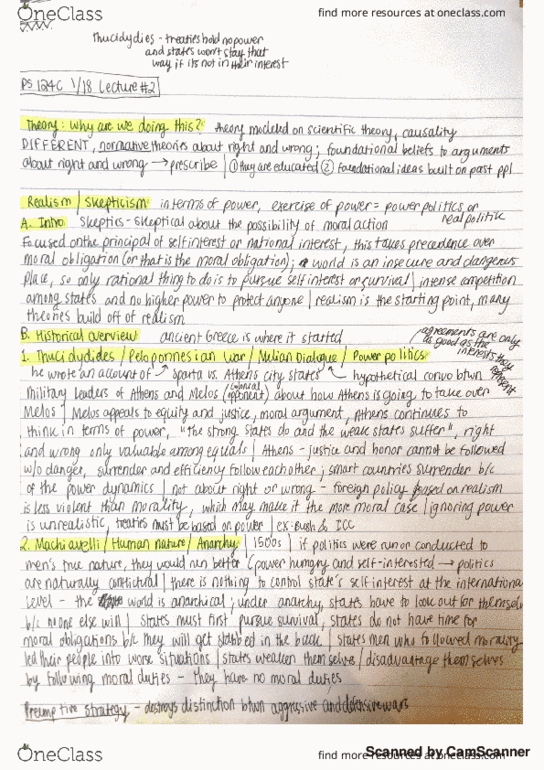 OneClass
find more resources at oneclass.com
Thucidydies - treaties hold no power
and states won't stay that
way if its not in their interest
PS 124C 1/18 Lecture #2
Theory: Why are we doing this? theory modeled on scientific theory, causality
DIFFERENT, normative theories about right and wrong; foundational beliefs to arguments
about right and wrong → prescribe | ① they are educated ② foundational ideas built on past ppl
Realism / Skepticism in terms of power, exercise of power = power politics, or
real politik
A. Intro Skeptics - skeptical about the possibility of moral action
Focused on the principal of self interest or national interest, this takes precedence over
moral obligation (or that is the moral obligation); world is an insecure and dangerous
place, so only rational thing to do is to pursue self interest or survival | intense competition
among states and no higher power to protect anyone | realism is the starting point, many
theories build off of realism
B. Historical overview ancient Greece is where it started
agreements are only
as good as the
interests they
represent
1. Thucidydides / Peloponnesian War / Melian Dialogue / Power politics
he wrote an account of Sparta vs. Athens city states hypothetical convo btwn
military leaders of Athens and Melos (opponent) about how Athens is going to take over
colonial
Melos | Melos appeals to equity and justice, moral argument, Athens continues to
think in terms of power, "the strong states do and the weak states suffer", right
and wrong only valuable among equals | Athens - justice and honor cannot be followed
w/o danger, surrender and efficiency follow each other; smart countries surrender b/c
of the power dynamics | not about right or wrong - foreign policy based on realism
is less violent than morality, which may make it the more moral case | ignoring power
is unrealistic, treaties must be based on power | ex-Bush & ICC
2. Machiavelli / Human nature / Anarchy | 1500s | if politics were run or conducted to
men's true nature, they would run better (power hungry and self-interested → politics
are naturally conflictual | there is nothing to control state's self interest at the international
level - the world is anarchical; under anarchy, states have to look out for themselv
b/c no one else will | states must first pursue survival, states do not have time for
moral obligations b/c they will get stabbed in the back | states men who followed morality
led their people into worse situations | states weaken themselves / disadvantage themselves
by following moral duties - they have no moral duties
Preemptive strategy - destroys distinction btwn aggressive and defensive wars
OneClass
find more resources at oneclass.com
Scanned by CamScanner